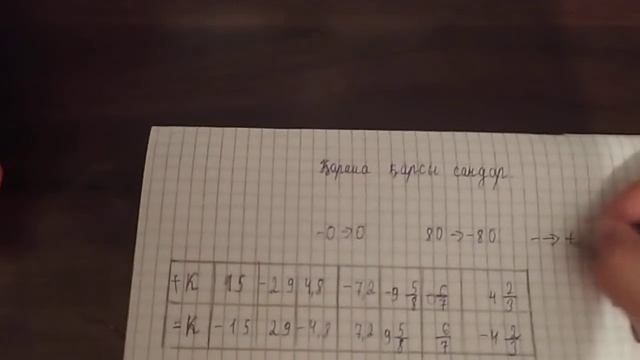 Қарама қарсы сандар
-0→0 80→-80 -→+
+К 15 -29 4,8 -7,2 -9 5/8 -6/7 4 2/3
=К -15 29 -4,8 7,2 9 5/8 6/7 -4 2/3